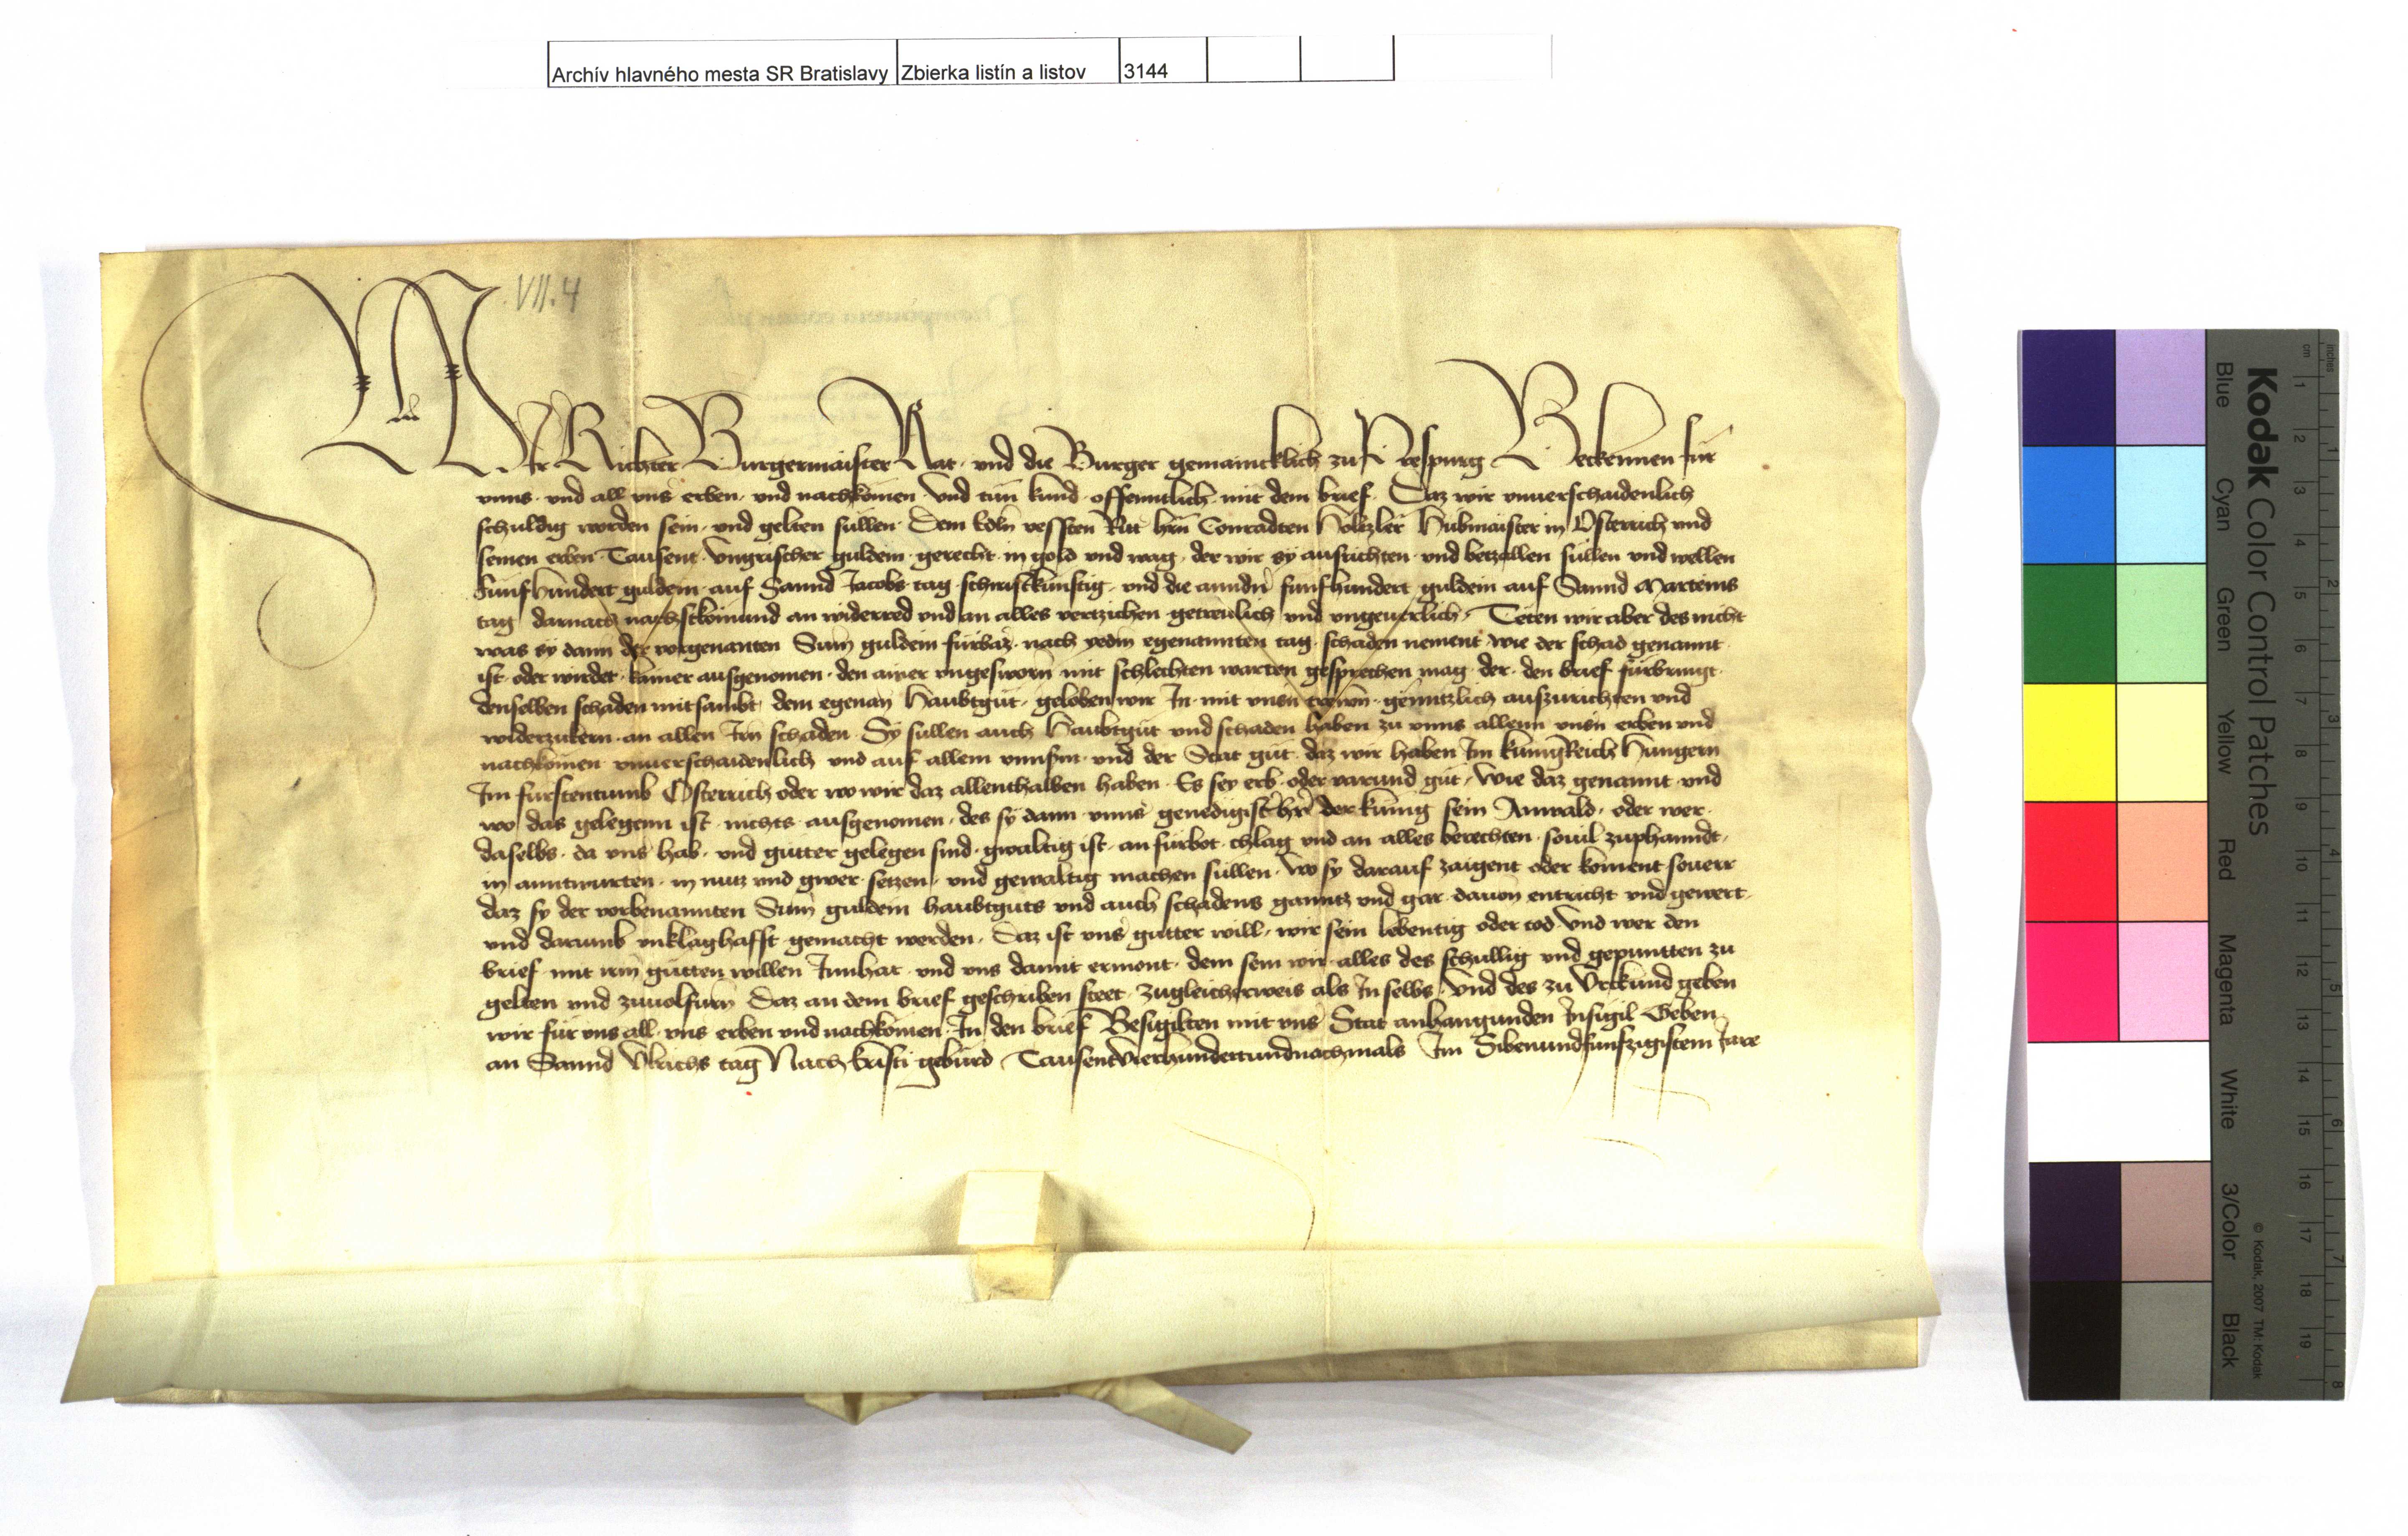 Archív hlavného mesta SR Bratislavy Zbierka listín a listov 3144
VII.4
Wir Richter Burgermaister Rat und die Burger gemaincklich zu Prespurg Bekennen für
unns und all uns erben und nachkomen Und tun kund offenntlich mit dem brief Daz wir unuerschaidenlich
schuldig worden sein und gelten sullen Dem Edln vessten Ritt hrn Conradten Höltzler Hubmaister in Österrich und
seinen erben Tausent Ungrischer guldein gerecht in gold und wag der wir sy ausrichten und betzallen sullen und wellen
Funfhundert guldein auf Sannd Jacobs tag schristkunftig und die anndn funfhundert guldein auf Sannd Marteins
tag darnach nachstkomund an widerred und an alles vertzichen getreulich und ungeuerlich Teten wir aber des nicht
was sy dann der vorgenanten Sum guldein fürbaz nach yedm egenannten tag schaden nement wie der schad genannt
ist oder wirdet kainer ausgenomen den ainer ungesworn mit schlechten warten gesprechen mag der den brief fürbringt
denselben schaden mitsambt dem egenan Haubtgut geloben wir In mit unsn trewn gënntzlich auszurichten und
widerzukern an allen Irn schaden Sy sullen auch Haubtgut und schaden haben zu unns allenn unsn erben und
nachkomen unuerschaidenlich und auf allem unnsm und der Stat gut daz wir haben Im kunigReich Hungern
Im furstentumb Österrich oder wo wir daz allenthalben haben Es sey erb oder varund gut wie daz genannt und
wo das gelegenn ist nichts ausgenomen des sy dann unns genedigist hr der kunig sein Anwald oder wer
daselbs da uns hab und gutter gelegen sind gwaltig ist an fürbot chlag und an alles berechten souil zuphanndt
in anntwurten in nutz und gwer setzen und gewaltig machen sullen wo sy darauf zaigent oder koment souerr
daz sy der vorbenannten Sum guldein haubtguts und auch schadens ganntz und gar dauon entricht und gewert
und darumb unklaghafft gemacht werden Daz ist uns gutter will wir sein lebentig oder tod Und wer den
brief mit irm gutten willen Innhat und uns damit ermont dem sein wir alles des schullig und gepunnten zu
gelten und zuuolfurn Daz an dem brief geschriben steet zugleicherweis als In selbs Und des zu Urkund geben
wir für uns all uns erben und nachkomen In den brief Besigilten mit uns Stat anhangunden Insigil Geben
an Sannd Ulrichs tag Nach kristi geburd Tausentvierhundertundnachmals Im Sibenundfunfzigistem Jare
Kodak Color Control Patches
Blue Cyan Green Yellow Red Magenta White 3/Color Black
© Kodak, 2007 TM: Kodak
cm 1 2 3 4 5 6 7 8 9 10 11 12 13 14 15 16 17 18 19
inches 1 2 3 4 5 6 7 8